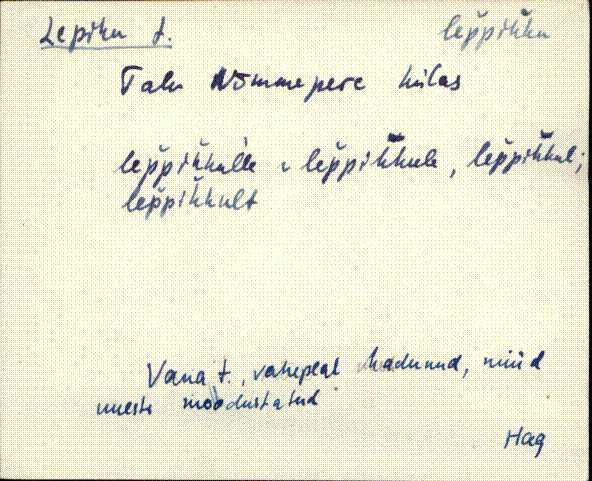 Lepiku t. lep̆pik̆ku
Talu Nõmmepere külas
lep̆pik̆kulle ~ lep̆pik̆kule, lep̆pik̆kul;
lep̆pik̆kult
Vana t., vahepeal kadunud, nüüd
uuesti moodustatud
Hag